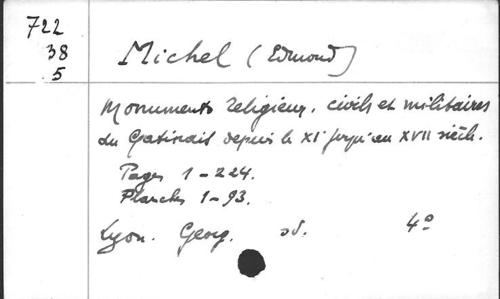 722
38
5
Michel (Edmond)
Monuments religieux, civils et militaires
du Gatinais depuis le XIe jusqu'au XVII siècle.
Pages 1-224.
Planches 1-93.
Lyon. Georg. sd. 4o